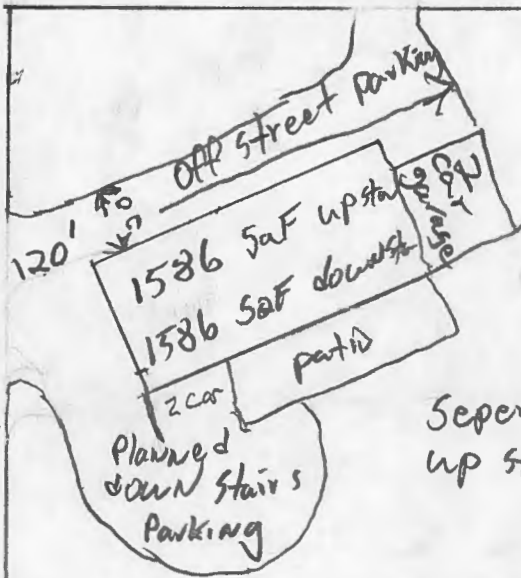 off street parking
120'
20
1586 SqF upsta
1586 SqF downsta
2 car
garage
patio
2 car
Planned
down stairs
Parking
Seper
up s